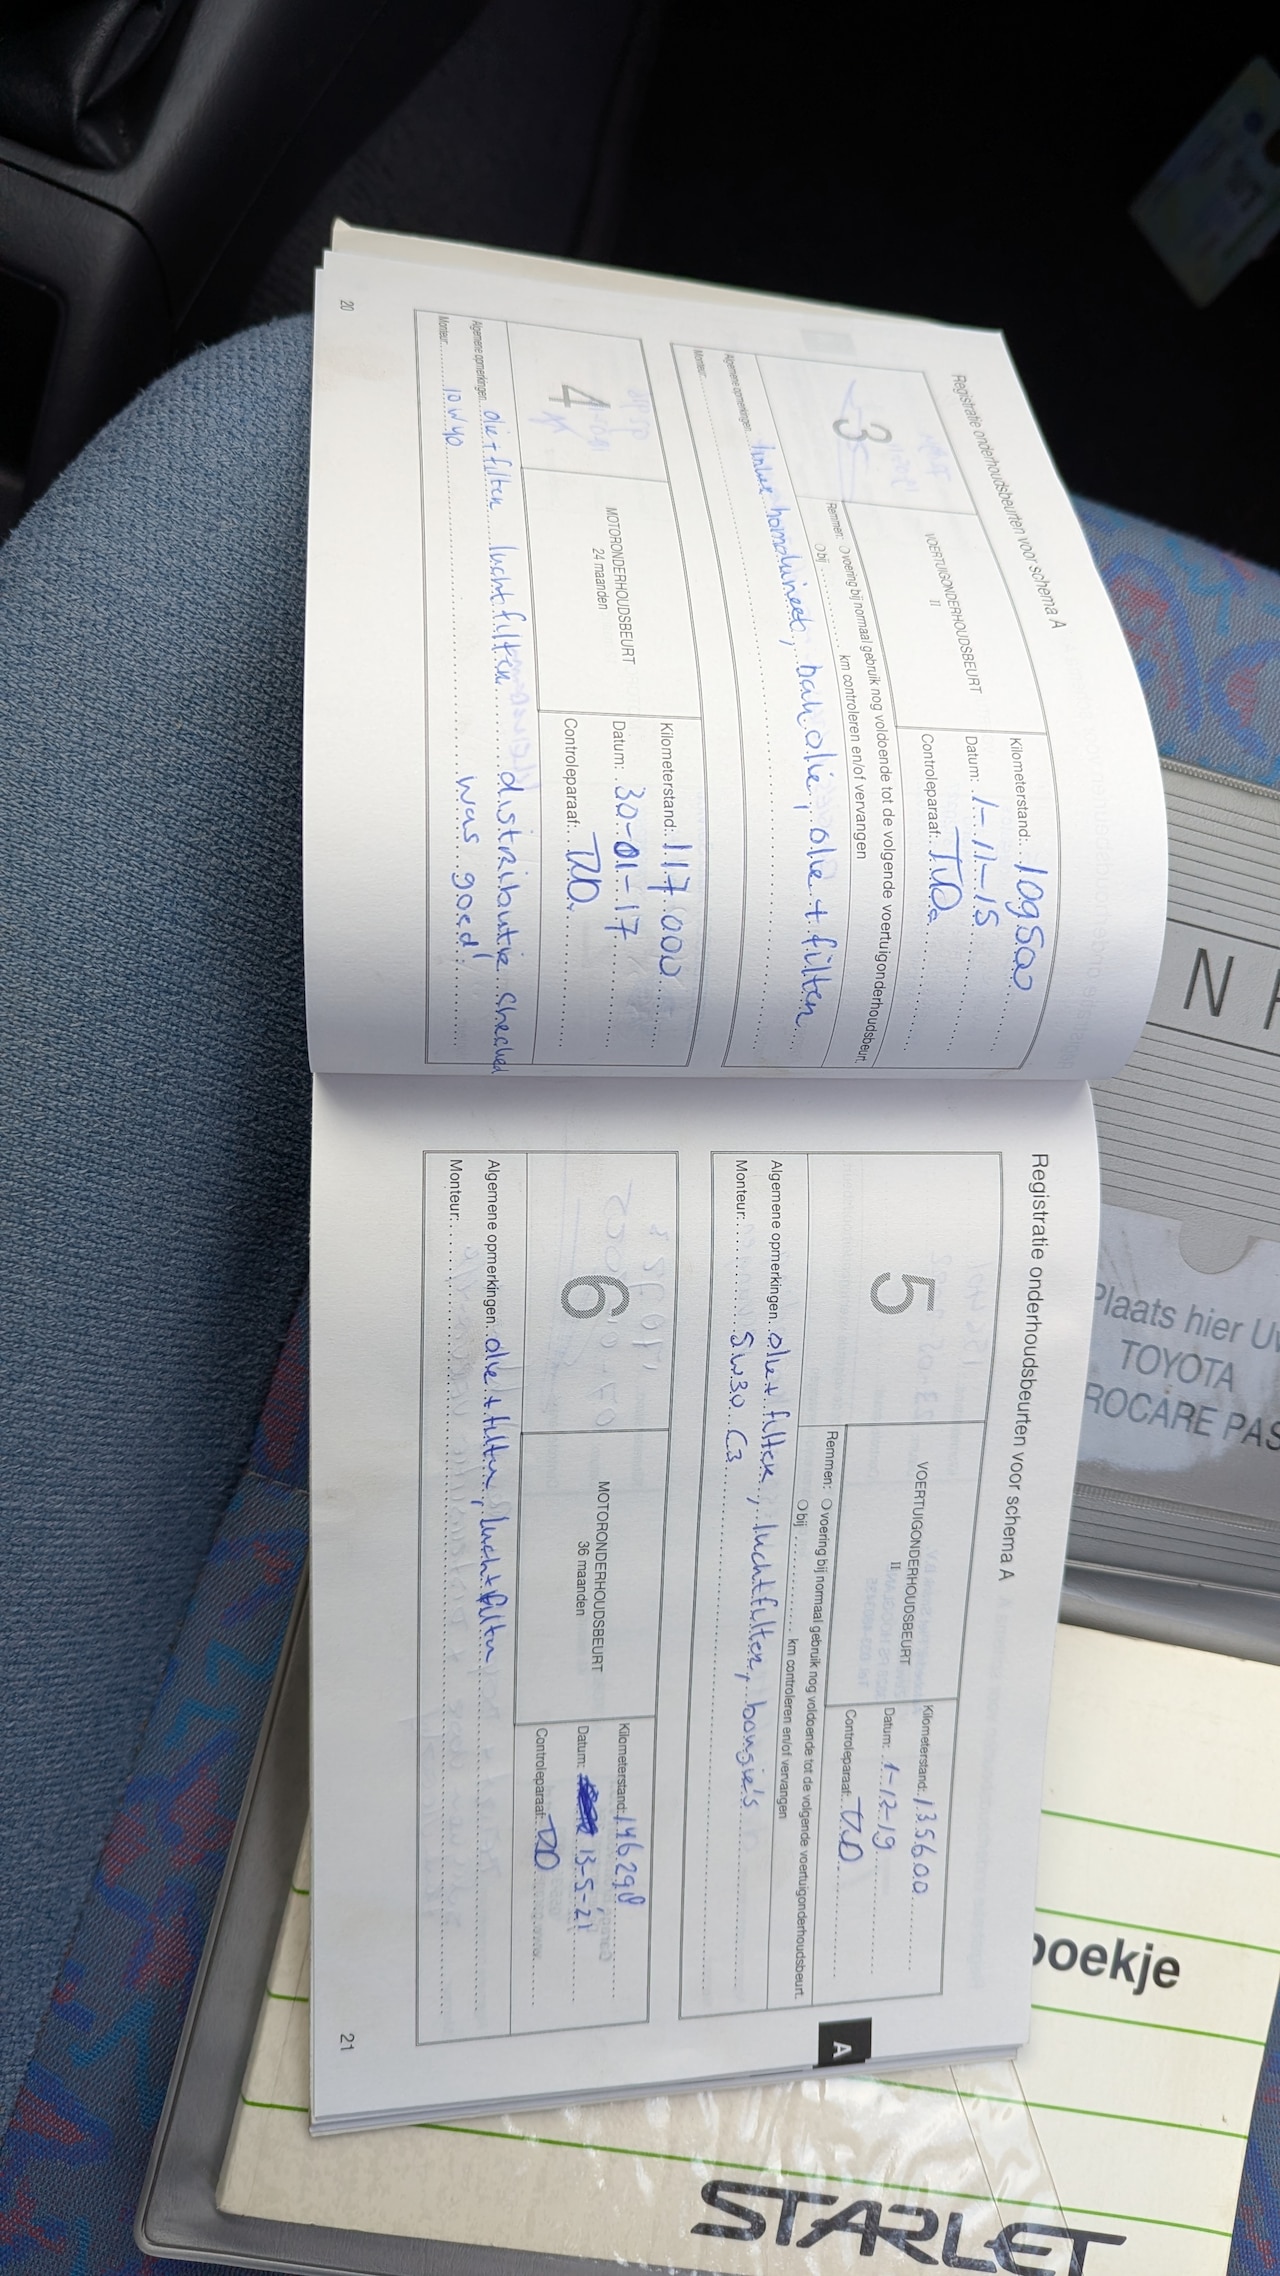 Registratie onderhoudsbeurten voor schema A
3
VOERTUIGONDERHOUDSBEURT
II
Kilometerstand: 109500
Datum: 1-11-15
Controleparaaf: TVD
Remmen: O voering bij normaal gebruik nog voldoende tot de volgende voertuigonderhoudsbeurt.
O bij ............ km controleren en/of vervangen
Algemene opmerkingen: linker homokineet, bak olie, olie + filter
Monteur:
4
MOTORONDERHOUDSBEURT
24 maanden
Kilometerstand: 117.000
Datum: 30-01-17
Controleparaaf: TVD
Algemene opmerkingen: olie + filter luchtfilter distributie checked
Monteur: 10W40 was goed!
20
Registratie onderhoudsbeurten voor schema A
5
VOERTUIGONDERHOUDSBEURT
II
Kilometerstand: 135600
Datum: 1-12-19
Controleparaaf: TVD
Remmen: O voering bij normaal gebruik nog voldoende tot de volgende voertuigonderhoudsbeurt.
O bij ............ km controleren en/of vervangen
Algemene opmerkingen: olie + filter, luchtfilter, bougie's
Monteur: 5W30 C3
6
MOTORONDERHOUDSBEURT
36 maanden
Kilometerstand: 146290
Datum: 13-5-21
Controleparaaf: TVD
Algemene opmerkingen: olie + filter, luchtfilter
Monteur:
21
A
N
Plaats hier
TOYOTA
ROCARE PAS
boekje
STARLET